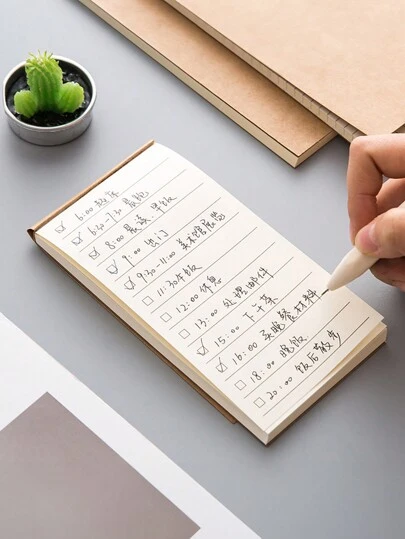 ☑ 6:00 起床
☑ 6:30-7:30 晨跑
☑ 8:00 晨读 早饭
☑ 9:00 出门
☑ 9:30-11:00 美术馆展览
☐ 11:30 午饭
☐ 12:00 休息
☐ 13:00 处理邮件
☑ 15:00 下午茶
☑ 16:00 买晚餐材料
☐ 18:00 晚饭
☐ 20:00 饭后散步